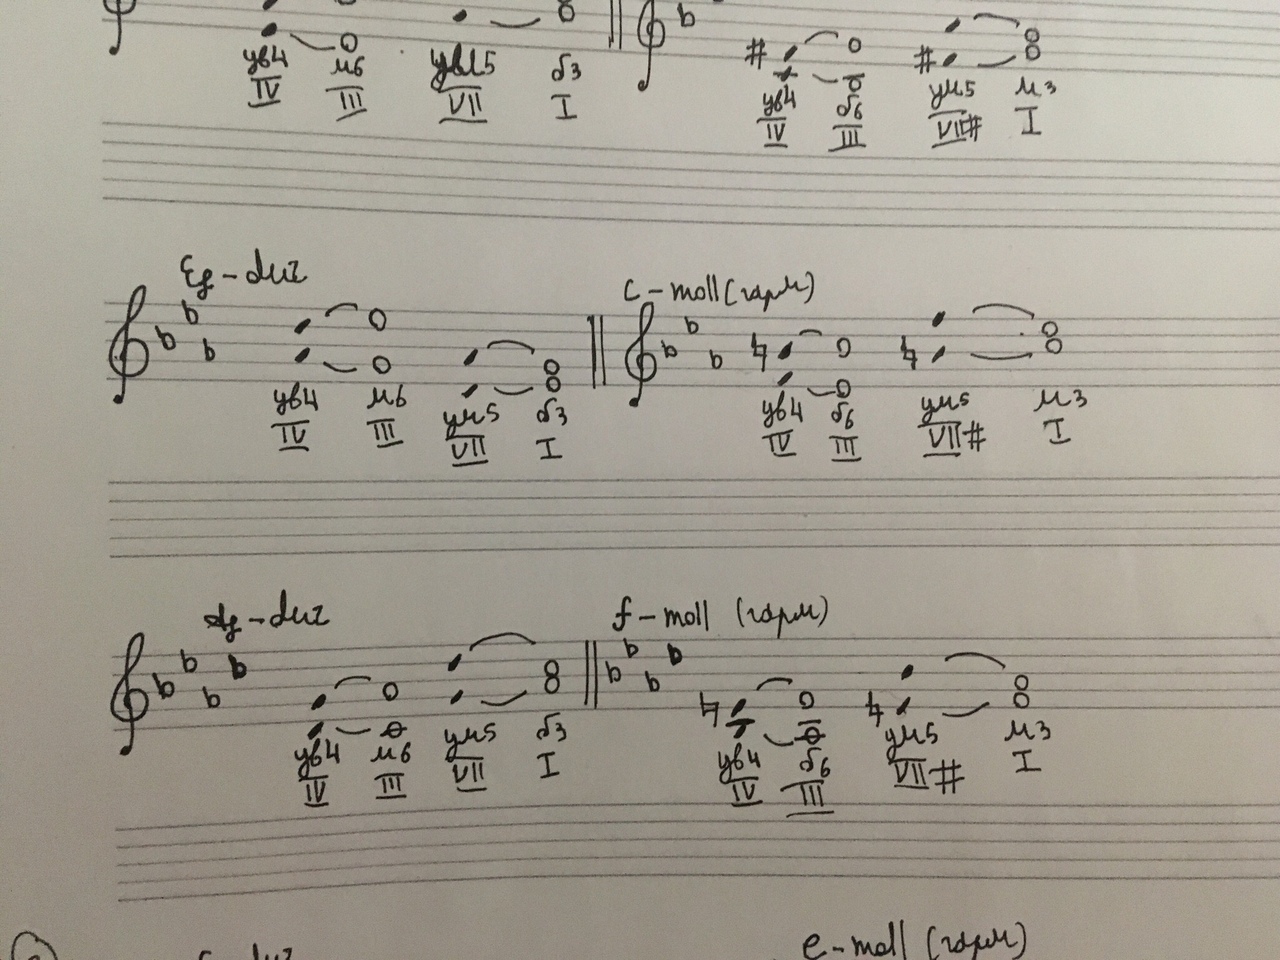 ув4 м6 ум5 б3
IV III VII I
ув4 б6 ум5 м3
IV III VII# I
Es-dur
c-moll (гарм)
ув4 м6 ум5 б3
IV III VII I
ув4 б6 ум5 м3
IV III VII# I
As-dur
f-moll (гарм)
ув4 м6 ум5 б3
IV III VII I
ув4 б6 ум5 м3
IV III VII# I
e-moll (гарм)